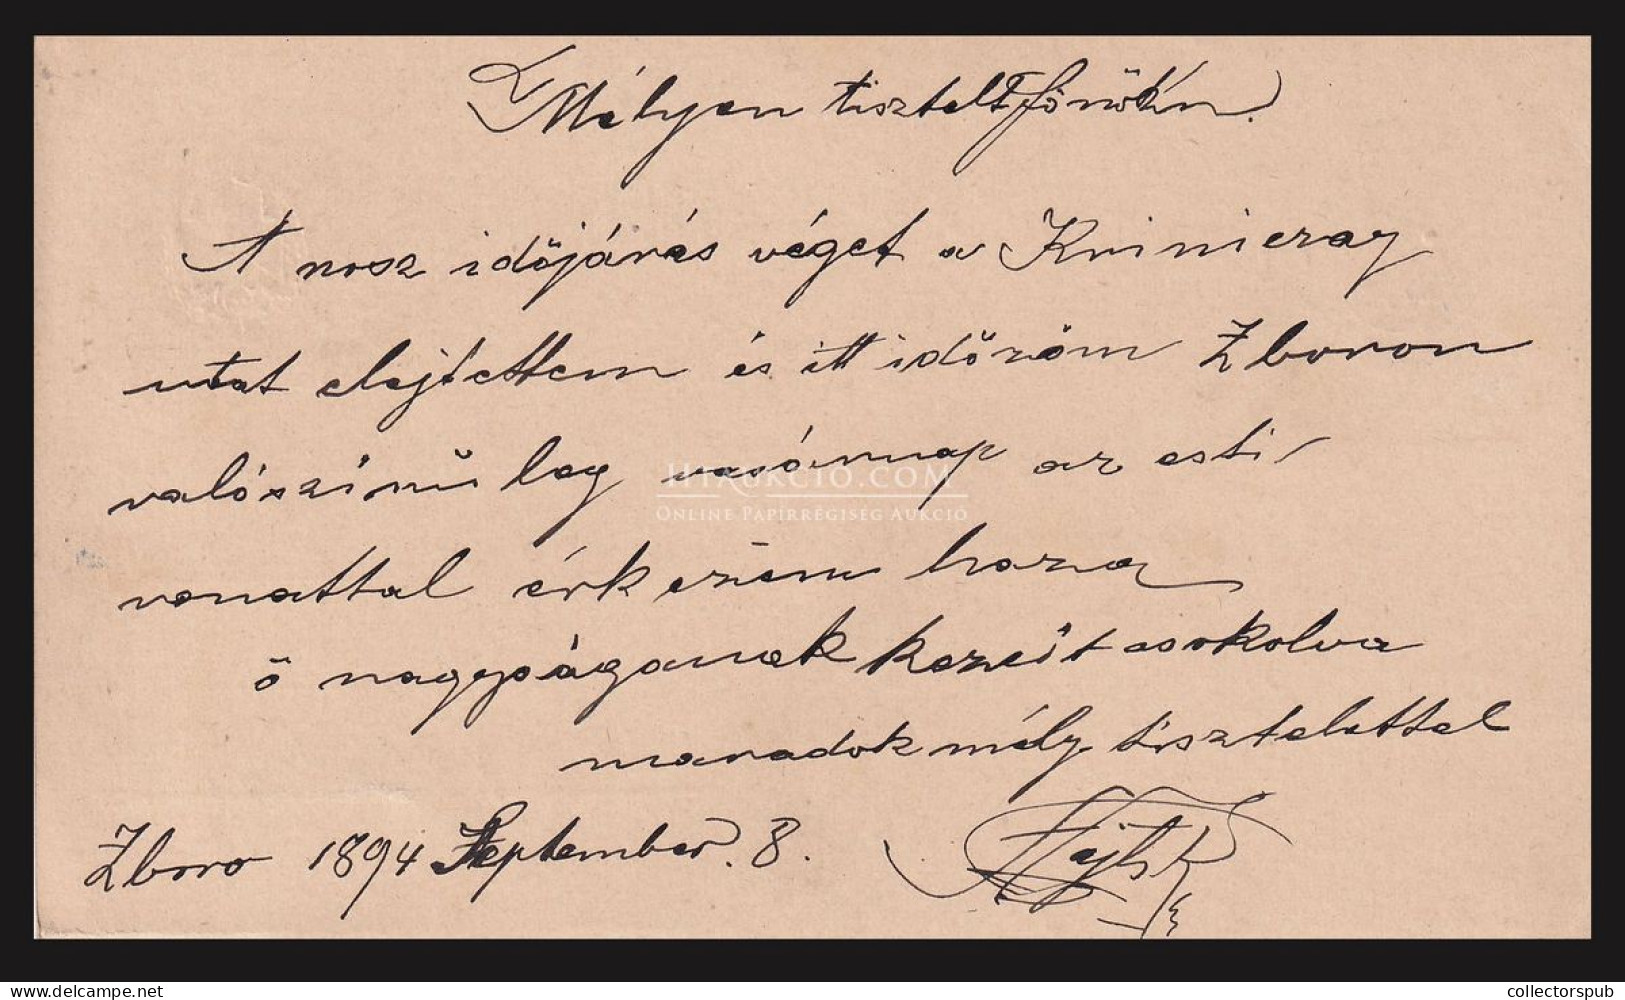 Mélyen tisztelt főnököm.
A rosz időjárás véget a Kriniczay
utat elejtettem és itt időzöm Zboron
valószinüleg vasárnap az esti
vonattal érkezem haza
ő nagyságanak kezeit csokolva
maradok mély tisztelettel
Zboro 1894 September. 8.
HTAUKCIO.COM
ONLINE PAPÍRRÉGISÉG AUKCIÓ
the-stamps
collectorspub